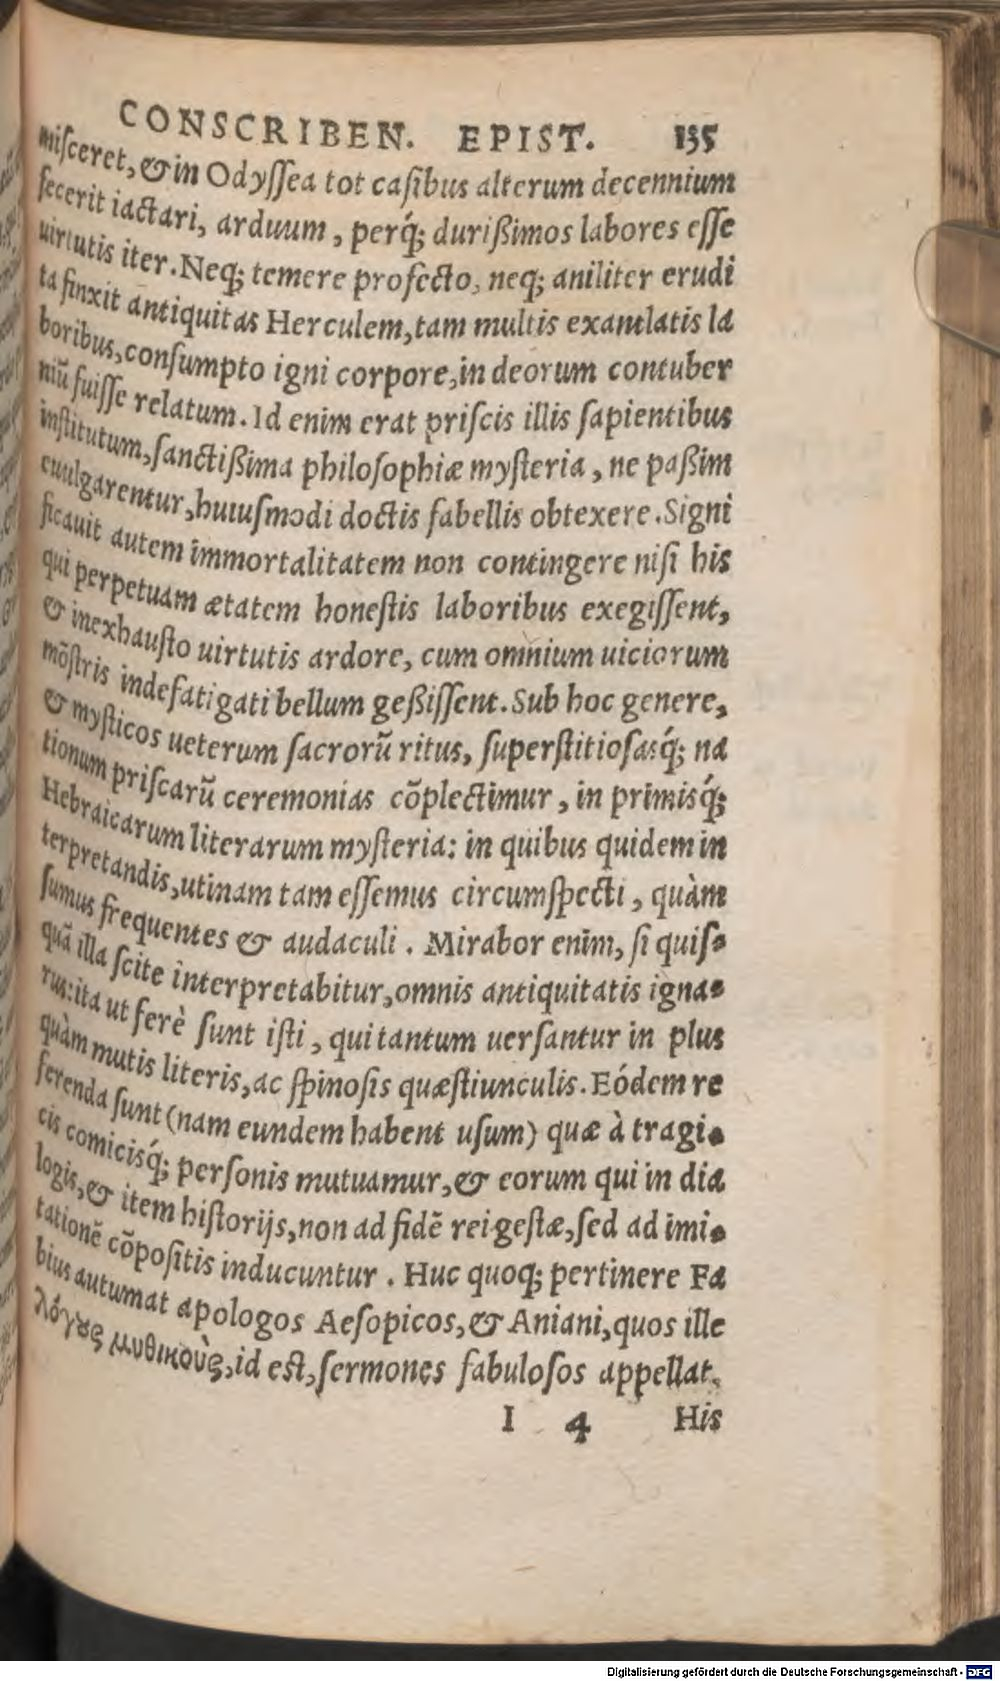 CONSCRIBEN. EPIST. 135
misceret, & in Odyſſea tot caſibus alterum decennium
fecerit iactari, arduum, perq́; durißimos labores eſſe
uirtutis iter. Neq; temere profecto, neq; aniliter erudi
ta finxit antiquitas Herculem, tam multis exantlatis la
boribus, conſumpto igni corpore, in deorum contuber
niũ fuiſſe relatum. Id enim erat priſcis illis ſapientibus
inſtitutum, ſanctißima philoſophiæ myſteria, ne paßim
euulgarentur, huiuſmodi doctis fabellis obtexere. Signi
ficauit autem immortalitatem non contingere niſi his
qui perpetuam ætatem honeſtis laboribus exegiſſent,
& inexhauſto uirtutis ardore, cum omnium uiciorum
mõſtris indefatigati bellum geßiſſent. Sub hoc genere,
& myſticos ueterum ſacrorũ ritus, ſuperſtitioſasq́; na
tionum priſcarũ ceremonias cõplectimur, in primisq́;
Hebraicarum literarum myſteria: in quibus quidem in
terpretandis, utinam tam eſſemus circumſpecti, quàm
ſumus frequentes & audaculi. Mirabor enim, ſi quiſ-
quã illa ſcite interpretabitur, omnis antiquitatis igna-
rus: ita ut ferè ſunt iſti, qui tantum uerſantur in plus
quàm mutis literis, ac ſpinoſis quæſtiunculis. Eódem re
ferenda ſunt (nam eundem habent uſum) quæ à tragi-
cis comicisq́; perſonis mutuamur, & eorum qui in dia
logis, & item hiſtorijs, non ad fidẽ rei geſtæ, ſed ad imi-
tationẽ cõpoſitis inducuntur. Huc quoq; pertinere Fa
bius autumat apologos Aeſopicos, & Aniani, quos ille
λόγȣς μυθικοὺς, id eſt, ſermones fabuloſos appellat.
I 4 His
Digitalisierung gefördert durch die Deutsche Forschungsgemeinschaft - DFG